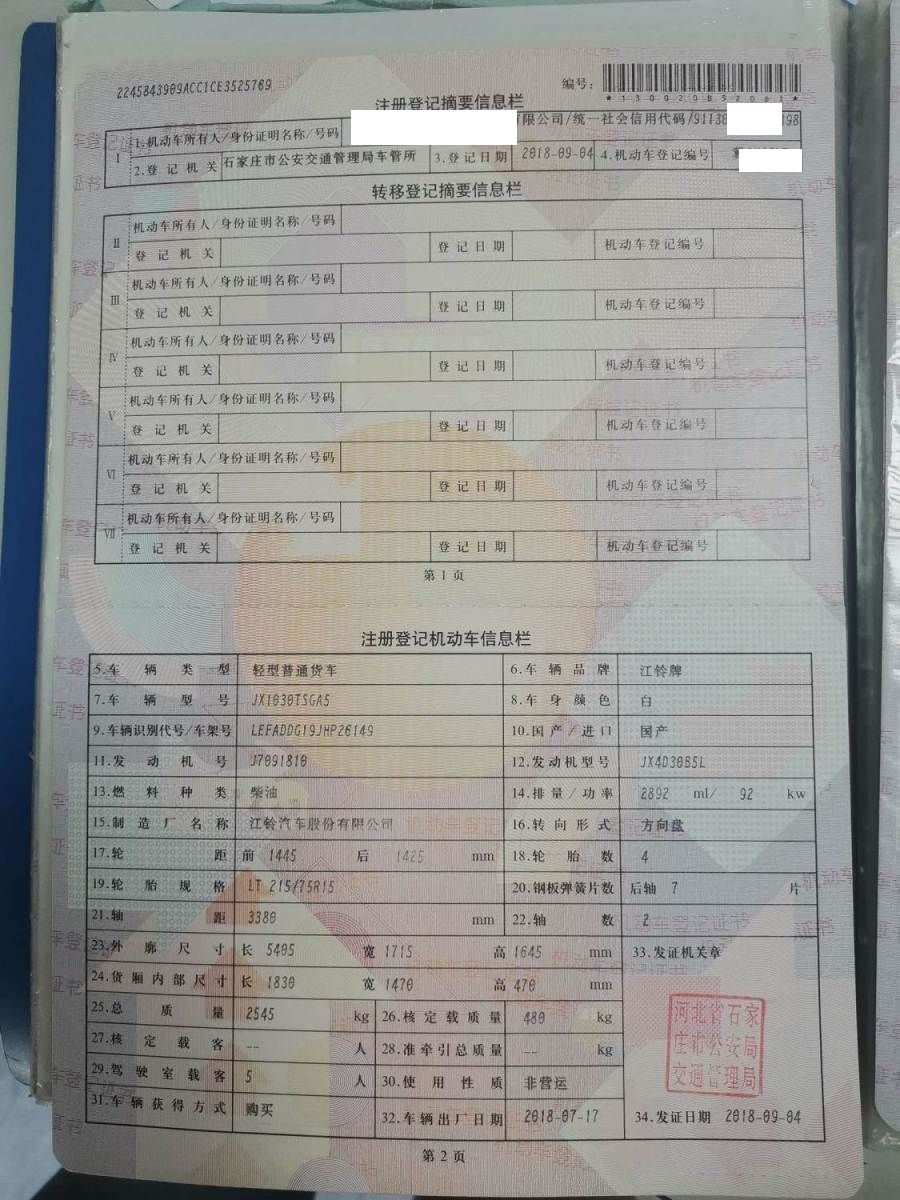 2245843909ACC1CE3525769
编号:
*130020852061*
注册登记摘要信息栏
I 1.机动车所有人/身份证明名称/号码 限公司/统一社会信用代码/91130 398
2.登记机关 石家庄市公安交通管理局车管所 3.登记日期 2018-09-04 4.机动车登记编号
转移登记摘要信息栏
II 机动车所有人/身份证明名称/号码
登记机关 登记日期 机动车登记编号
III 机动车所有人/身份证明名称/号码
登记机关 登记日期 机动车登记编号
IV 机动车所有人/身份证明名称/号码
登记机关 登记日期 机动车登记编号
V 机动车所有人/身份证明名称/号码
登记机关 登记日期 机动车登记编号
VI 机动车所有人/身份证明名称/号码
登记机关 登记日期 机动车登记编号
VII 机动车所有人/身份证明名称/号码
登记机关 登记日期 机动车登记编号
第1页
注册登记机动车信息栏
5.车辆类型 轻型普通货车 6.车辆品牌 江铃牌
7.车辆型号 JX1030TSGA5 8.车身颜色 白
9.车辆识别代号/车架号 LEFADDG19JHP26149 10.国产/进口 国产
11.发动机号 J7091810 12.发动机型号 JX4D30B5L
13.燃料种类 柴油 14.排量/功率 2892 ml/ 92 kw
15.制造厂名称 江铃汽车股份有限公司 16.转向形式 方向盘
17.轮距 前 1445 后 1425 mm 18.轮胎数 4
19.轮胎规格 LT 215/75R15 20.钢板弹簧片数 后轴 7 片
21.轴距 3380 mm 22.轴数 2
23.外廓尺寸 长 5405 宽 1715 高 1645 mm 33.发证机关章
24.货厢内部尺寸 长 1830 宽 1470 高 470 mm
25.总质量 2545 kg 26.核定载质量 480 kg
27.核定载客 -- 人 28.准牵引总质量 -- kg
29.驾驶室载客 5 人 30.使用性质 非营运
31.车辆获得方式 购买 32.车辆出厂日期 2018-07-17 34.发证日期 2018-09-04
河北省石家
庄市公安局
交通管理局
第2页